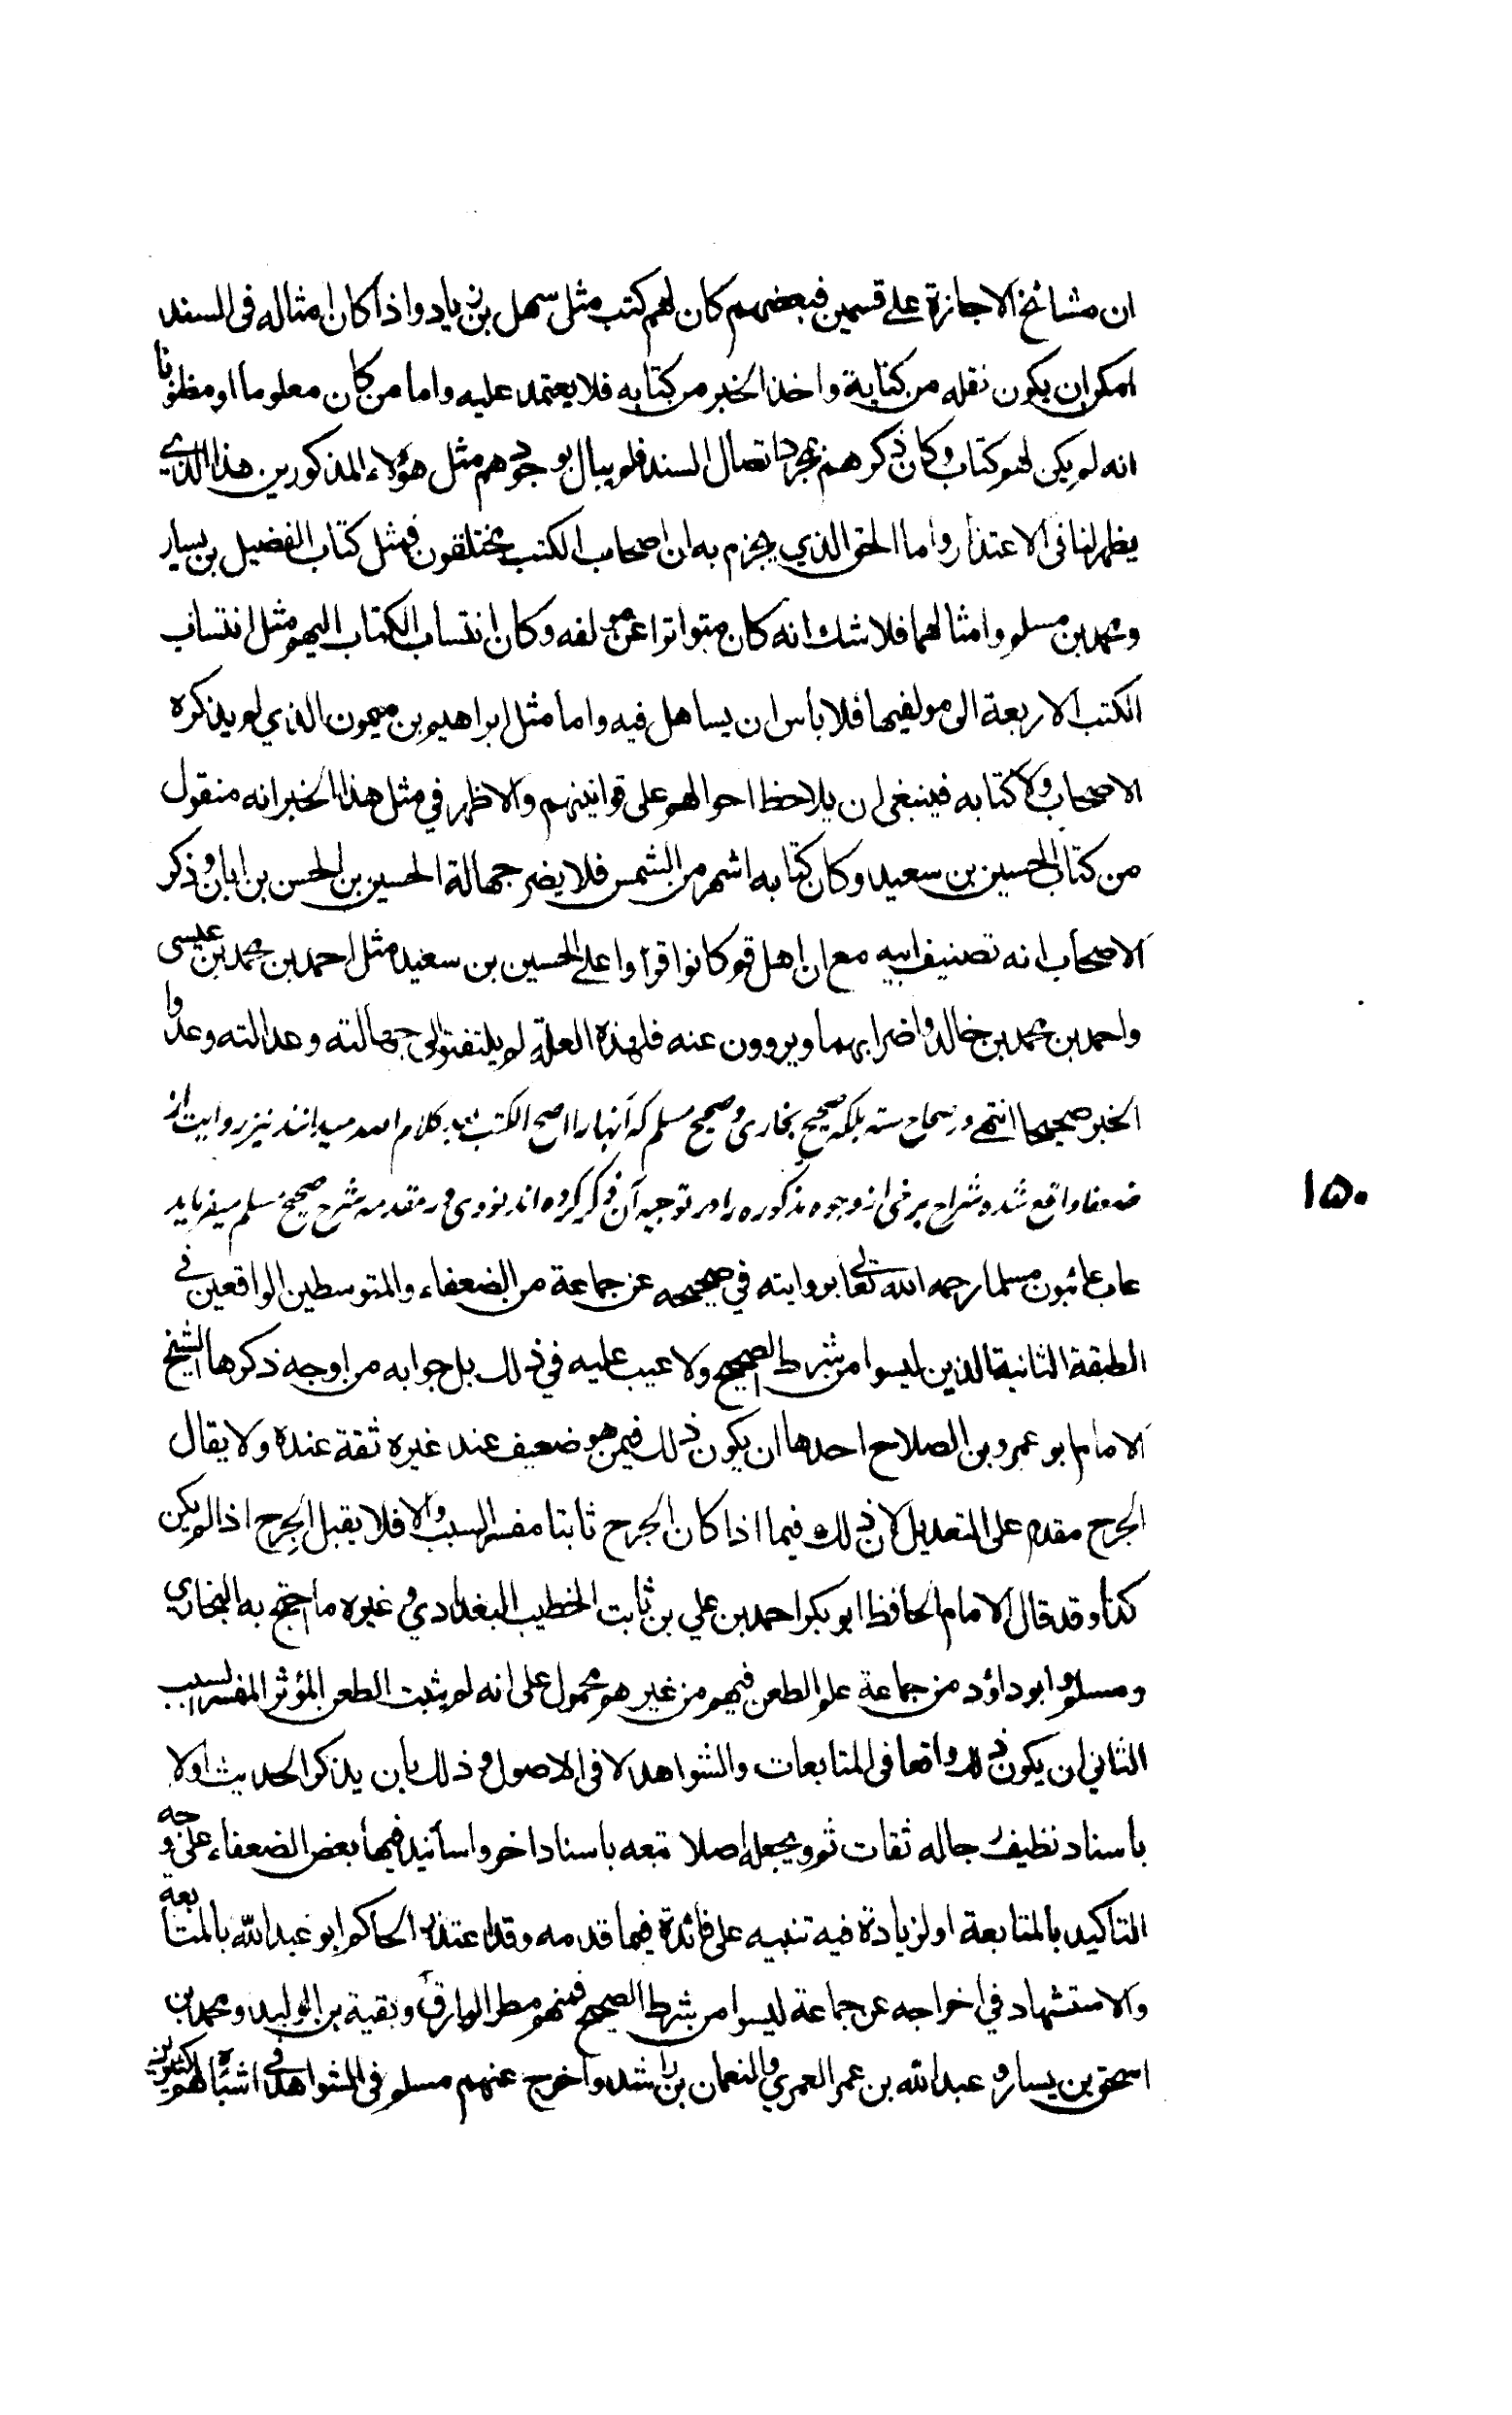 ان مشائخ الاجازة على قسمين فبعضهم كان لهم كتب مثل سهل بن زياد واذا كان امثاله فى السند
امكن ان يكون نقله من كتابة واخذ الخبر من كتابه فلا يعتمد عليه واما من كان معلوما او مظنونا
انه لم يكن لهم كتاب وكان ذكرهم بمجرد اتصال السند فلو يبال بوجودهم مثل هؤلاء المذكورين هذا الذي
يظهر لنا فى الاعتذار واما الحق الذي يجزم به ان اصحاب الكتب يختلقون فمثل كتاب الفضيل بن يسار
ومحمد بن مسلم وامثالهما فلا شك انه كان متواترا عن مؤلفه وكان انتساب الكتاب اليهم مثل انتساب
الكتب الاربعة الى مولفيها فلا بأس ان يساهل فيه واما مثل ابراهيم بن ميمون الذي لم يذكره
الاصحاب ولا كتابه فينبغى ان يلاحظ احوالهم على قوانينهم والاظهر في مثل هذا الخبر انه منقول
من كتاب الحسين بن سعيد وكان كتابه اشهر من الشمس فلا يضر جهالة الحسين بن الحسن بن ابان وذكر
الاصحاب انه تصنيف ابيه مع ان اهل قم كانوا قراوا على الحسين بن سعيد مثل احمد بن محمد بن عيسى
واحمد بن محمد بن خالد واضرابهما ويروون عنه فلهذه العلة لم يلتفتوا الى جهالته وعدالته وعدوا
الخبر صحيحا انتهى ودر صحاح سته بلكه صحيح بخارى وصحيح مسلم كه آنها را اصح الكتب بعد كلام الله ميدانند نيز روايت از
ضعفا واقع شده شراح برخى از وجوه مذكوره را در توجيه آن ذكر كرده اند نووى در مقدمه شرح صحيح مسلم ميفرمايد
عاب عائبون مسلما رحمه الله تعالى بروايته في صحيحه عن جماعة من الضعفاء والمتوسطين الواقعين فى
الطبقة الثانية الذين ليسوا من شرط الصحيح ولا عيب عليه في ذلك بل جوابه من اوجه ذكرها الشيخ
الامام ابو عمرو بن الصلاح احدها ان يكون ذلك فيمن هو ضعيف عند غيره ثقة عنده ولا يقال
الجرح مقدم على التعديل لان ذلك فيما اذا كان الجرح ثابتا مفسر السبب والا فلا يقبل الجرح اذا لم يكن
كذا وقد قال الامام الحافظ ابو بكر احمد بن علي بن ثابت الخطيب البغدادي وغيره ما احتج به البخاري
ومسلم وابو داؤد من جماعة علم الطعن فيهم من غيرهم محمول على انه لم يثبت الطعن المؤثر المفسر السبب
الثاني ان يكون ذلك واقعا فى المتابعات والشواهد لا فى الاصول وذلك بأن يذكر الحديث اولا
بأسناد نظيف رجاله ثقات ثم ويجعله اصلا تبعه باسناد اخر واسانيد فيها بعض الضعفاء على وجه
التاكيد بالمتابعة او لزيادة فيه تنبيه على فائدة فيما قدمه وقد اعتذر الحاكم ابو عبد الله بالمتابعة
والاستشهاد في اخراجه عن جماعة ليسوا من شرط الصحيح فمنهم مطر الوراق وبقية بن الوليد ومحمد بن
اسحق بن يسار وعبد الله بن عمر العمري والنعمان بن راشد واخرج عنهم مسلم فى الشواهد فى اشباه لهم كثيرين
١٥٠